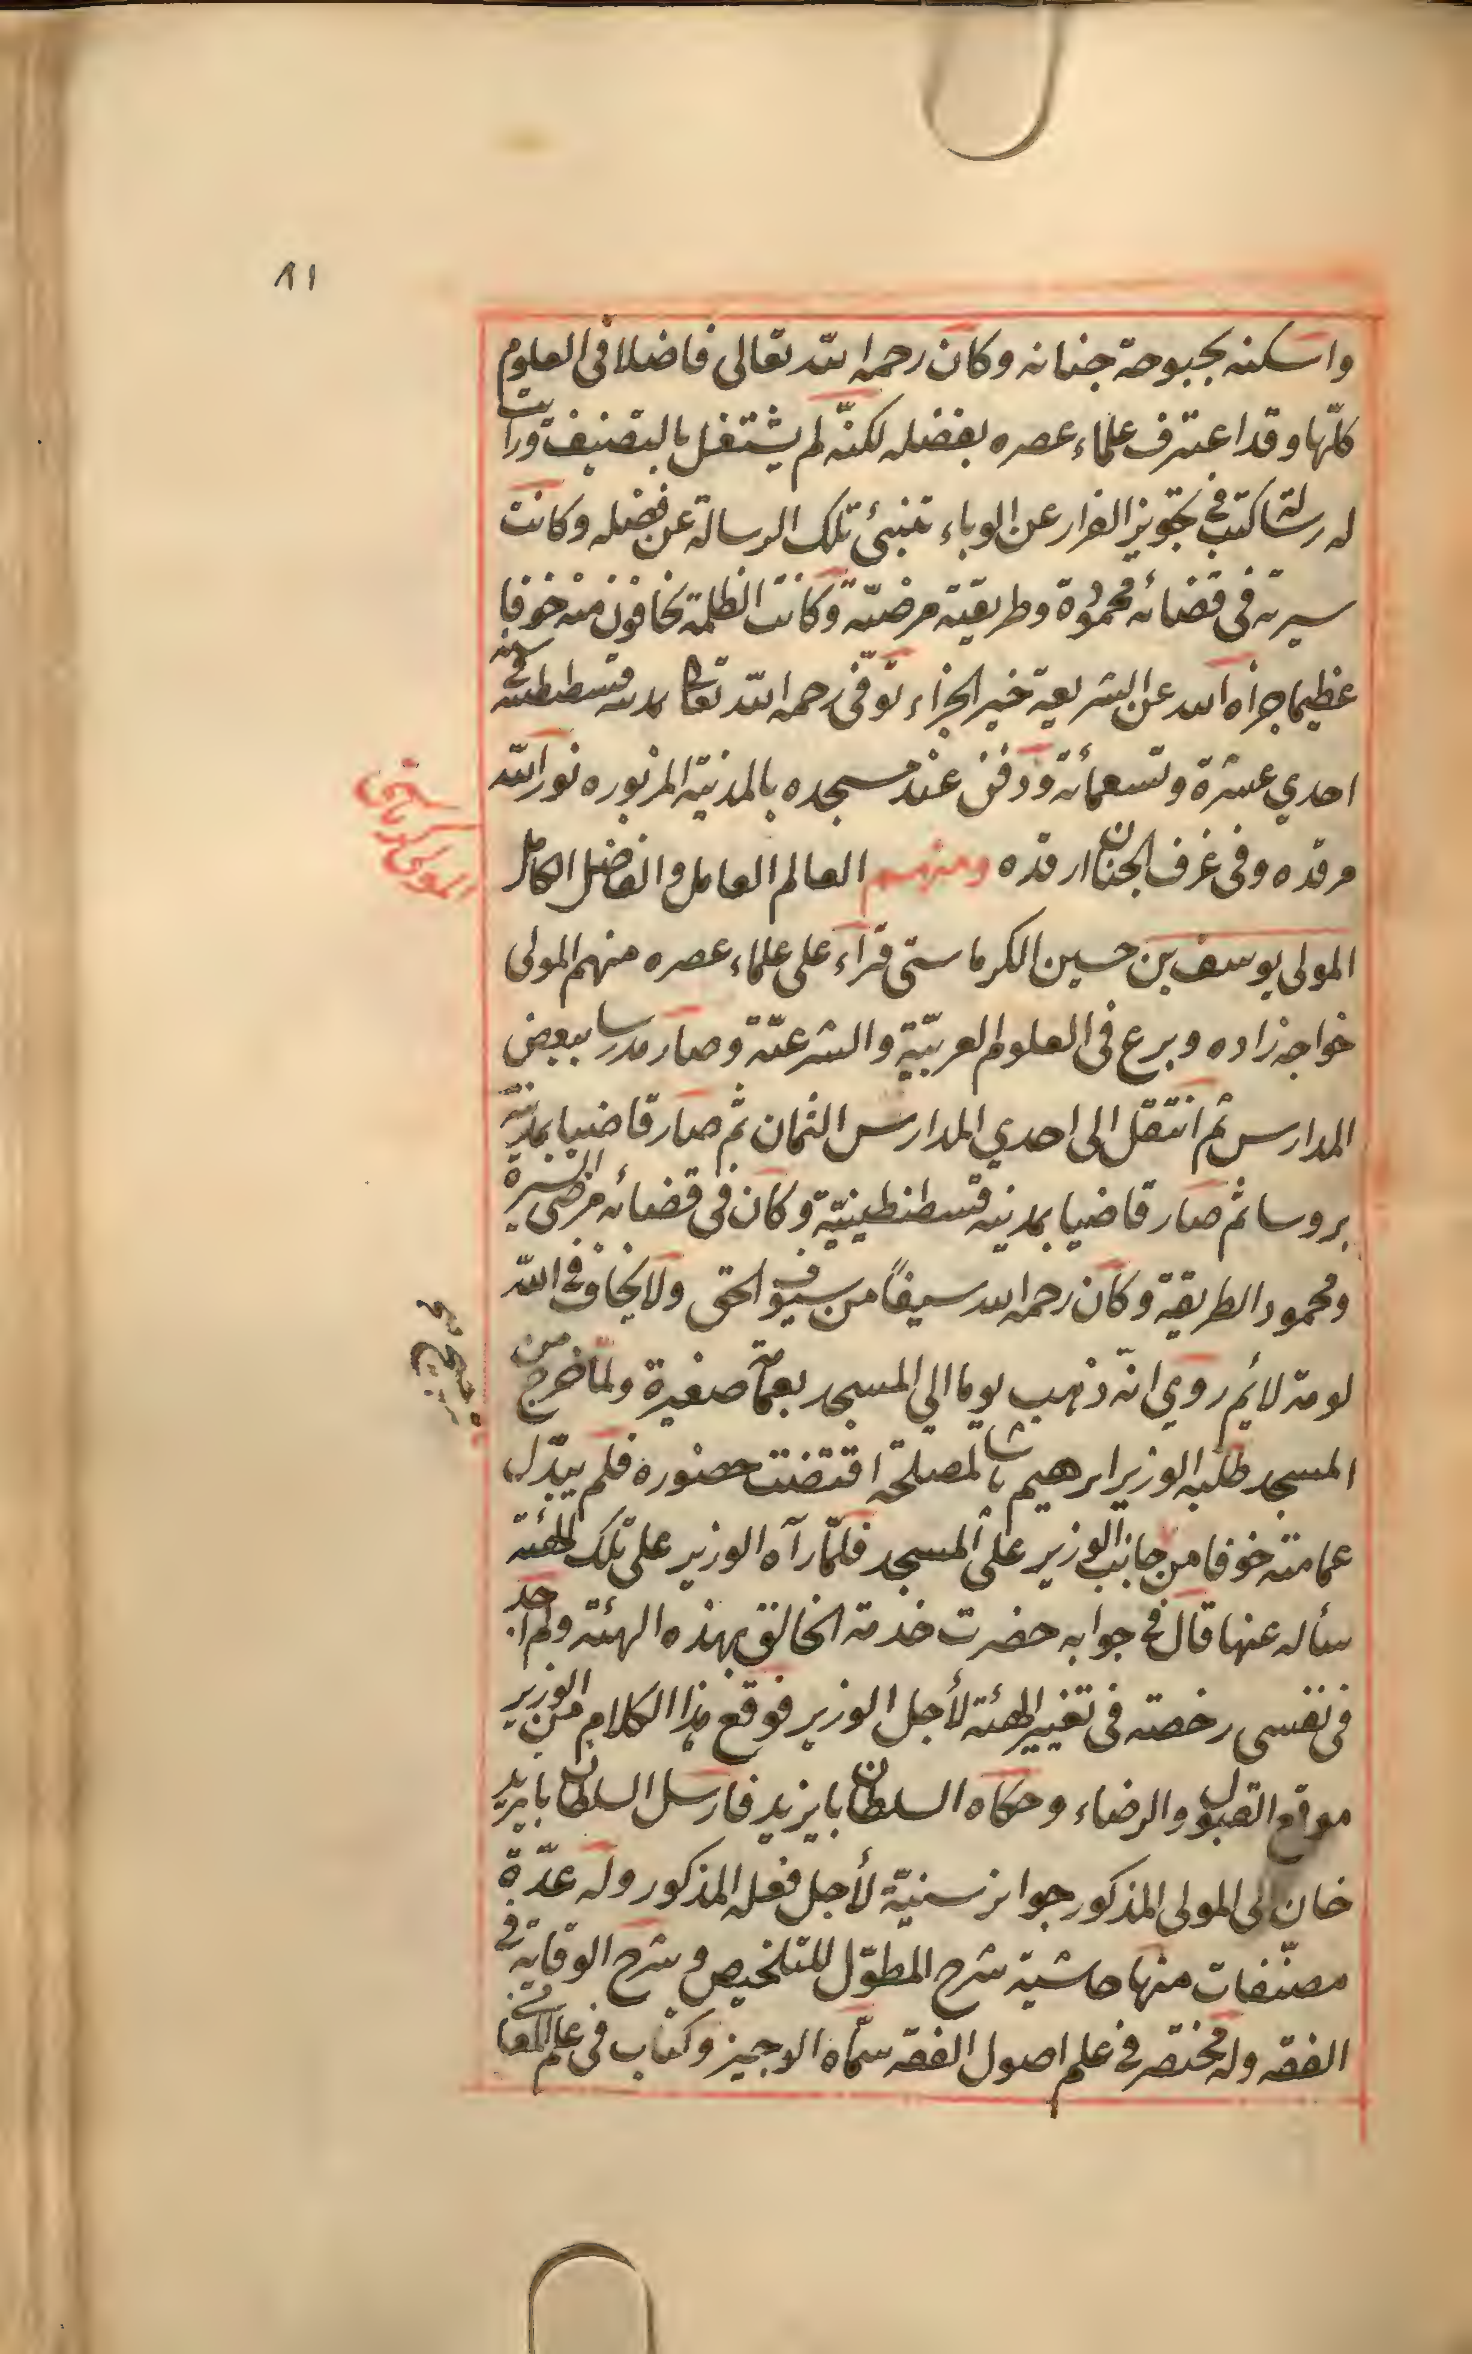 ٨١
واسكنه بحبوحة جنانه وكان رحمه الله تعالى فاضلا فى العلوم
كلّها وقد اعترف علماء عصره بفضله لكنّه لم يشتغل بالتصنيف ورأيت
له رسالة كتب فى تجويز الفرار عن الوباء تنبئ تلك الرسالة عن فضله وكانت
سيرته فى قضائه محمودة وطريقته مرضيّة وكانت الظلمة يخافون منه خوفا
عظيما جزاه الله عن الشريعة خير الجزاء توفّى رحمه الله تعالى بمدينة قسطنطنية فى سنة
احدي عشرة وتسعمائة ودفن عند مسجده بالمدينة المزبوره نور الله
مرقده وفى غرف الجنان ارقده ومنهم العالم العامل والفاضل الكامل
المولى الكرماستى
المولى يوسف بن حسين الكرماستى قراء على علماء عصره منهم المولى
خواجه زاده وبرع فى العلوم العربيّة والشرعيّة وصار مدرسا ببعض
المدارس ثم انتقل الى احدي المدارس الثمان ثم صار قاضيا بمدينة
بروسا ثم صار قاضيا بمدينة قسطنطينيّة وكان فى قضائه مرضى السيرة
ومحمود الطريقة وكان رحمه الله سيفاً من سيوف الحق ولا يخاف فى الله
لومة لائم روي انّه ذهب يوما الي المسجد بعمامة صغيرة ولمّا خرج من
المسجد طلبه الوزير ابرهيم باشا لمصلحة اقتضت حضوره فلم يبدّل
عمامته خوفا من جانب الوزير على المسجد فلمّا رآه الوزير على تلك الهئة
سأله عنها قال فى جوابه حضرت خدمة الخالق بهذه الهئة ولم اجد
فى نفسى رخصة فى تغيير الهئة لأجل الوزير فوقع هذا الكلام من الوزير
موقع القبول والرضاء وحكاه السلطان بايزيد فارسل السلطان بايزيد
خان الى المولى المذكور جوايز سنيّة لأجل فعله المذكور وله عدّة
مصنّفات منها حاشية شرح المطوّل للتلخيص وشرح الوقاية فى
الفقه وله مختصر فى علم اصول الفقه سمّاه الوجيز وكتاب فى علم المعانى